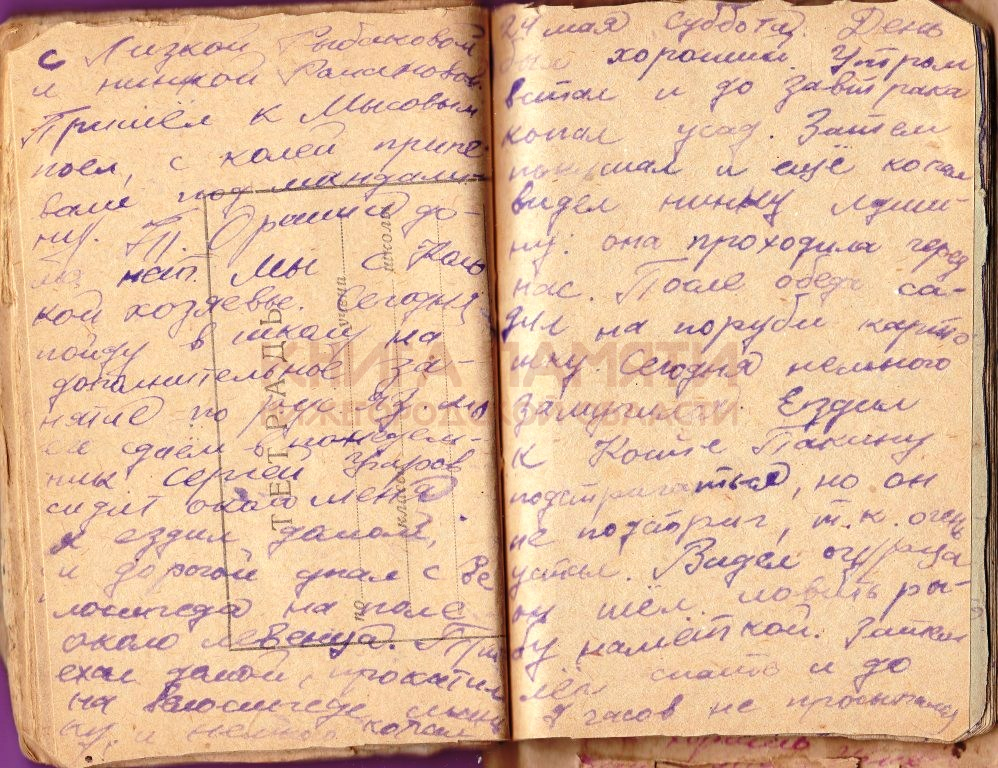 с Лизкой Рыбаковой
и нинкой Романовой.
Пришёл к Мысовым
поел, с колей припе-
вали под мандали-
ну. Т. Ораши до-
ма нет. Мы с Коль
кой хозяевы. Сегодня
пойду в школу на
дополнительное за-
нятие по
её сдаём в понедель-
ник Сергей Угаров
сидит около меня
я ездил домой,
и дорогой упал с ве
лосипеда на поле
около левенца. При
ехал домой, прокатил
на велосипеде
ку, и немного копал
24 мая суббота. День
был хороший. Утром
встал и до завтрака
копал усад. Затем
и ещё копал
видел нинку
ну: она проходила черед
нас. После обеда са-
дил на поруби карто
шку Сегодня немного
замучился. Ездил
к Косте Пакину
подстригаться, но он
не подстриг, т.к. очень
устал. Видел огурца
он шёл ловить ры-
бу намёткой. Затем
лёг спать и до
часов не просыпался
ТЕТРАДЬ
по
класса
учени
школы
КНИГА ПАМЯТИ
НИЖЕГОРОДСКОЙ ОБЛАСТИ